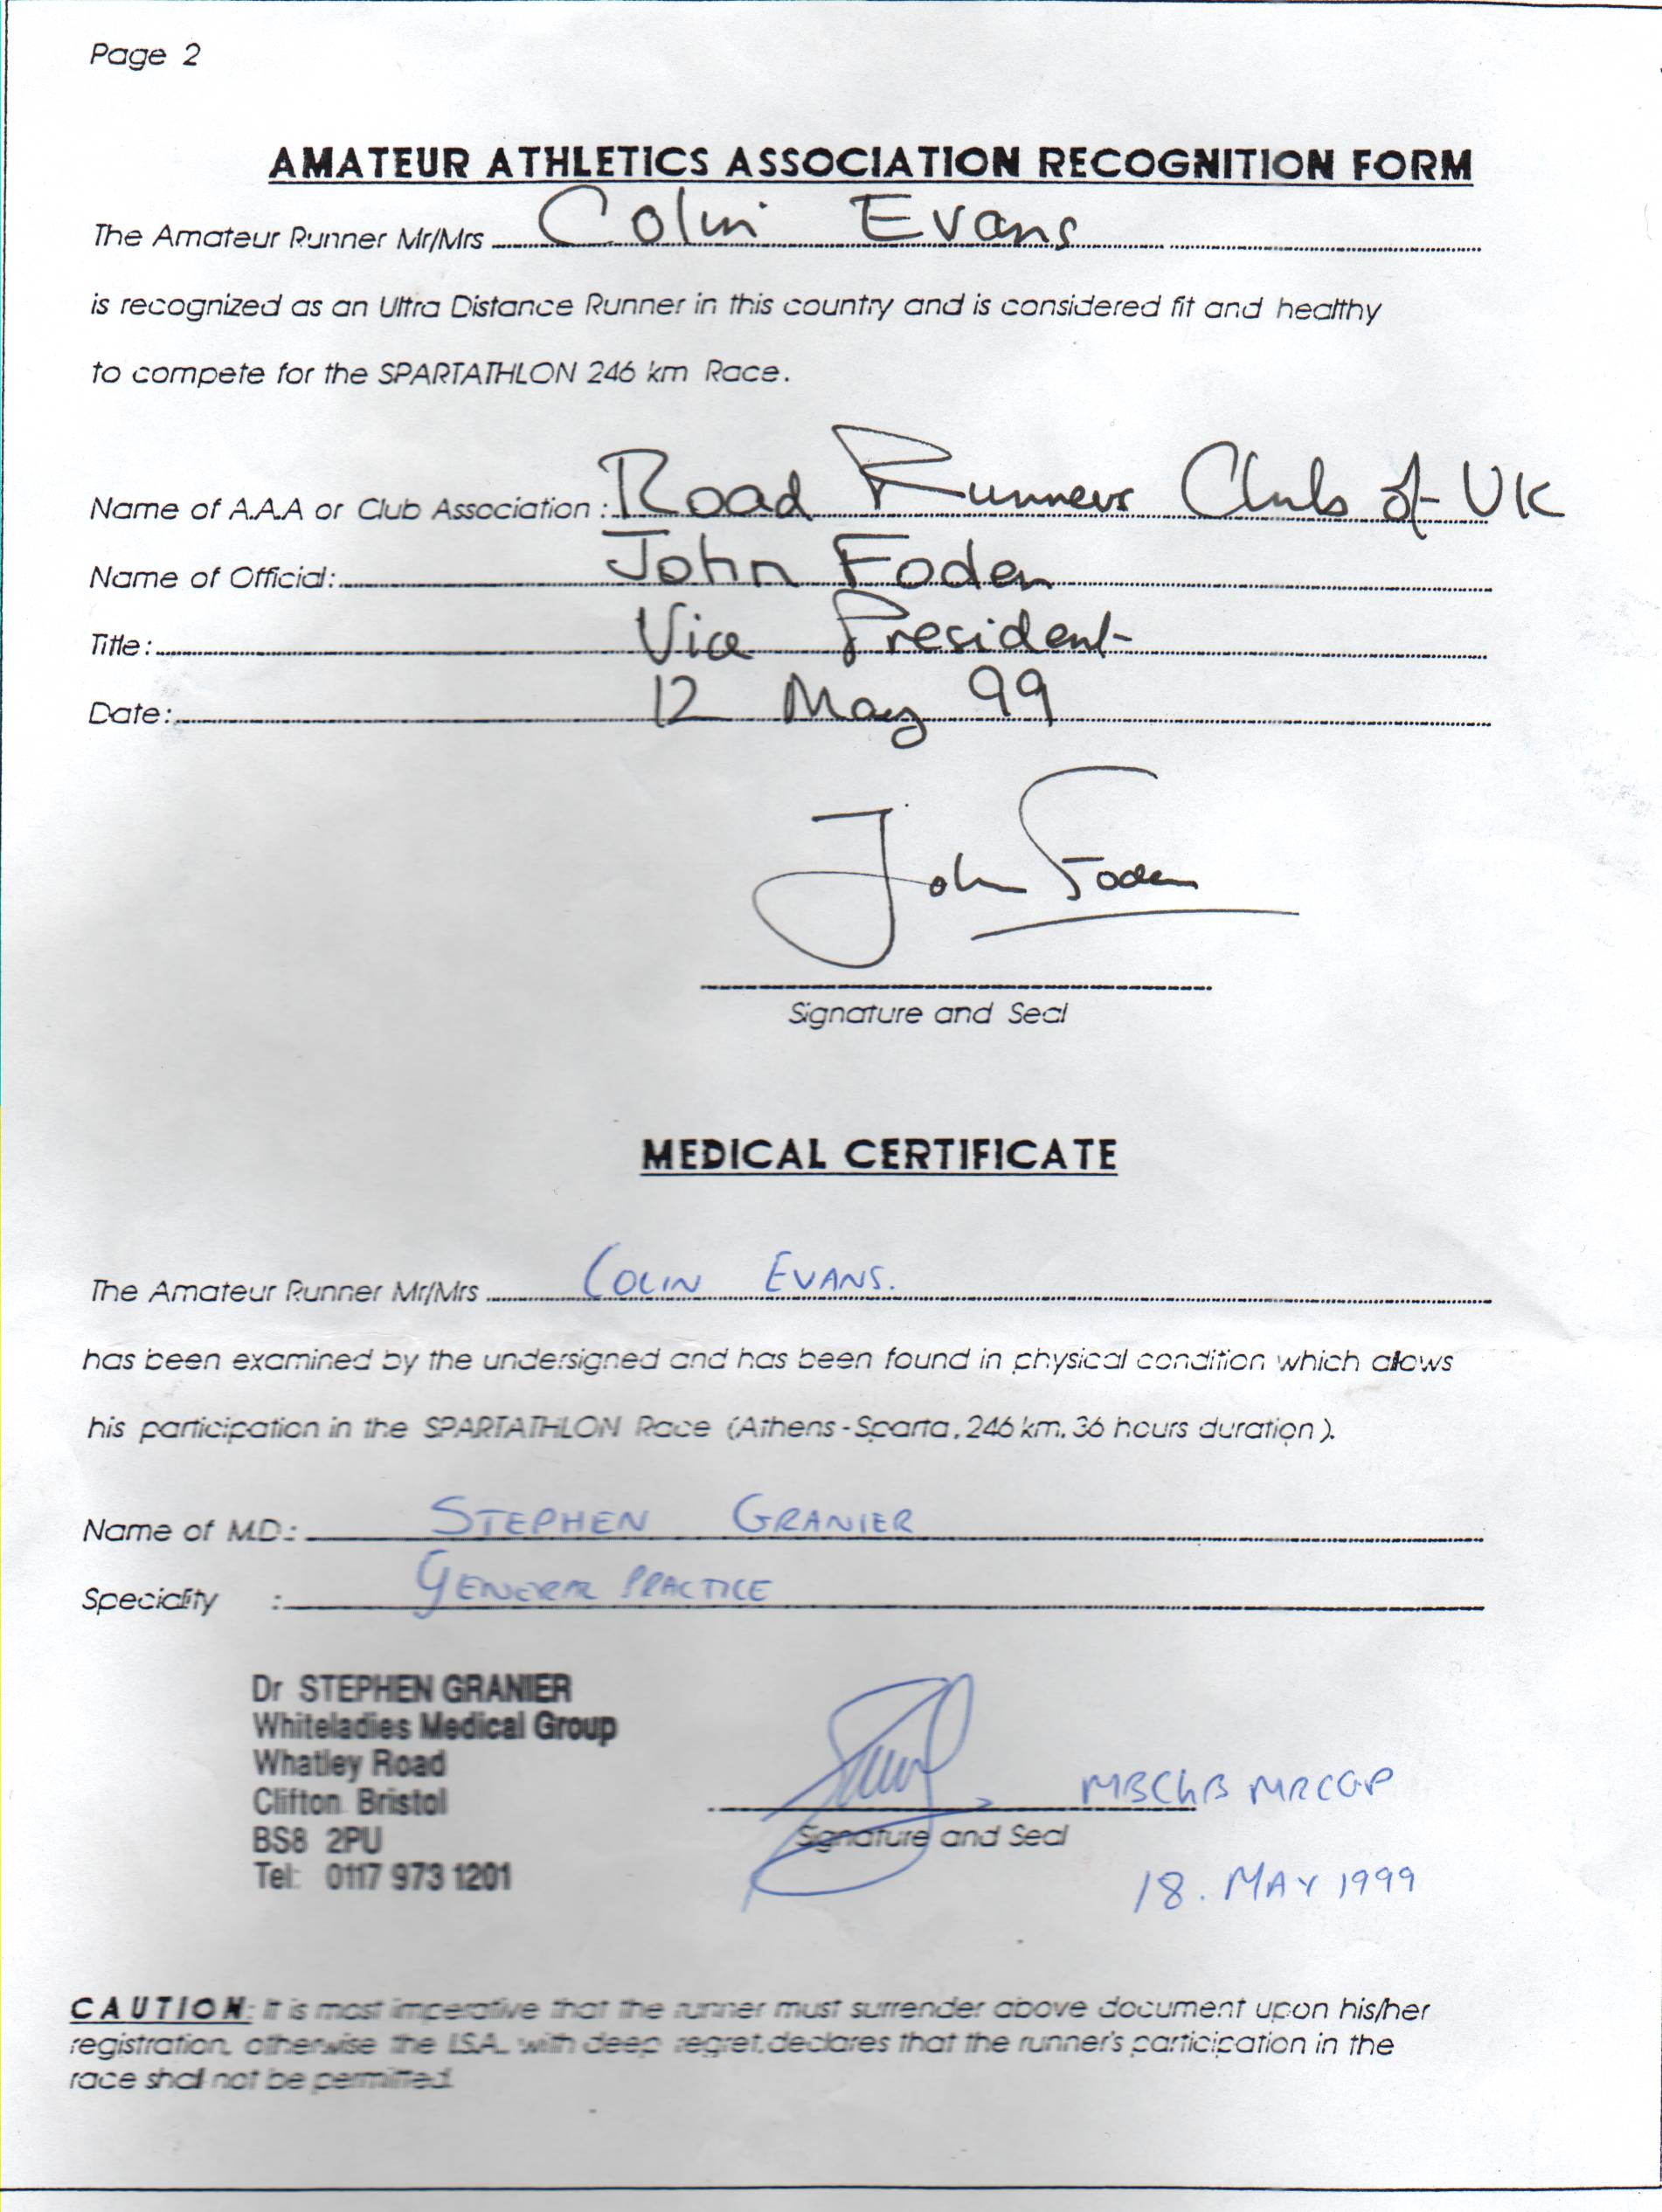 Page 2
AMATEUR ATHLETICS ASSOCIATION RECOGNITION FORM
The Amateur Runner Mr/Mrs Colin Evans
is recognized as an Ultra Distance Runner in this country and is considered fit and healthy
to compete for the SPARTATHLON 246 km Race.
Name of A.A.A or Club Association: Road Runners Club of UK
Name of Official: John Foden
Title: Vice President
Date: 12 May 99
John Foden
Signature and Seal
MEDICAL CERTIFICATE
The Amateur Runner Mr/Mrs COLIN EVANS.
has been examined by the undersigned and has been found in physical condition which allows
his participation in the SPARTATHLON Race (Athens-Sparta, 246 km, 36 hours duration).
Name of M.D.: STEPHEN GRANIER
Speciality : GENERAL PRACTICE
Dr STEPHEN GRANIER
Whiteladies Medical Group
Whatley Road
Clifton Bristol
BS8 2PU
Tel: 0117 973 1201
MBChB MRCGP
Signature and Seal
18. MAY 1999
CAUTION: It is most imperative that the runner must surrender above document upon his/her
registration, otherwise the I.S.A., with deep regret, declares that the runner's participation in the
race shall not be permitted.